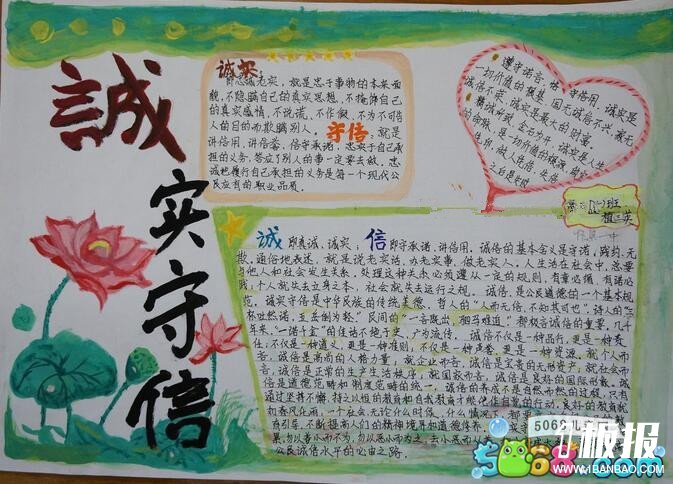 誠
实
守
信
诚实:
即忠诚老实,就是忠于事物的本来面
貌,不隐瞒自己的真实思想,不掩饰自己
的真实感情,不说谎,不作假,不为不可告
人的目的而欺瞒别人。守信,就是
讲信用,讲信誉,信守承诺,忠实于自己承
担的义务,答应了别人的事一定要去做。忠
诚地履行自己承担的义务是每一个现代
公民应有的职业品质。
遵守诺言、恪守信用,诚实是
一切价值的根基
国无诚信不兴,家无
诚信不荣,诚实是人生
诚 即真诚、诚实;信 即守承诺、讲信用。诚信的基本含义是守诺、践约、无
欺。通俗地表述,就是说老实话、办老实事、做老实人。人生活在社会中,总要
与他人和社会发生关系。处理这种关系必须遵从一定的规则,有章必循,有诺必
践;个人就失去立身之本,社会就失去运行之规。诚信,是公民道德的一个基本规
范。诚实守信是中华民族的传统美德。哲人的“人而无信,不知其可也”,诗人的“三
杯吐然诺,五岳倒为轻”,民间的“一言既出,驷马难追”,都极言诚信的重要。几千
年来,“一诺千金”的佳话不绝于史,广为流传。诚信不仅是一种品行,更是一种责
任;不仅是一种道义,更是一种准则;不仅是一种声誉,更是一种资源。就个人而
言,诚信是高尚的人格力量;就企业而言,诚信是宝贵的无形资产;就社会而
言,诚信是正常的生产生活秩序;就国家而言,诚信是良好的国际形象。诚
信是道德范畴和制度范畴的统一。诚信的养成不是自然而然的过程,只有
通过坚持不懈、持之以恒的教育和自我教育才能
初春风化雨,一个社会,无论什么时候、什么情况下,都要
育引导,不断提高人们的精神境界和道德修养
果。勿以善小而不为,勿以恶小而为之
公民诚信水平的必由之路。
5068儿
板报
5068.com
WWW.1BANBAO.COM